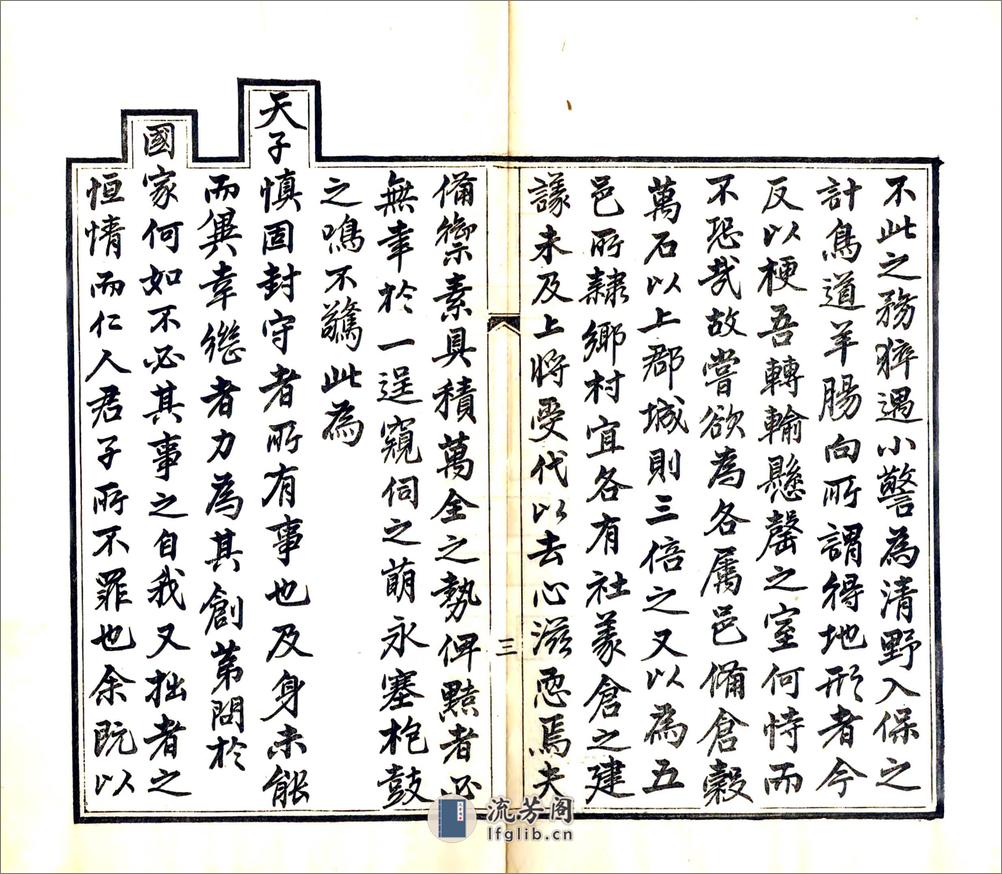 不此之務猝遇小警為清野入保之
計鳥道羊腸向所謂得地形者今
反以梗吾轉輸懸罄之室何恃而
不恐哉故嘗欲為各屬邑備倉穀
萬石以上郡城則三倍之又以為五
邑所隸鄉村宜各有社義倉之建
議未及上將受代以去心滋恧焉夫
三
備禦素具積萬全之勢俾黠者必
無幸於一逞窺伺之萌永塞枹鼓
之鳴不驚此為
天子慎固封守者所有事也及身未能
而兾幸繼者力為其創第問於
國家何如不必其事之自我又拙者之
恒情而仁人君子所不罪也余既以
流芳阁
lfglib.cn